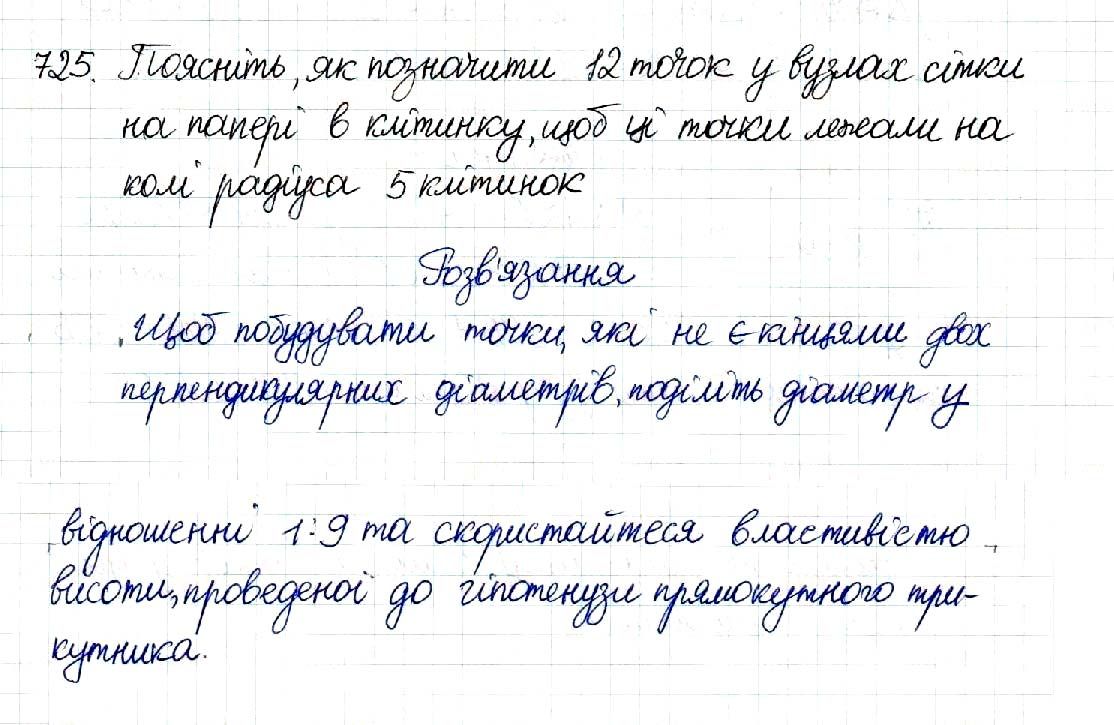 725. Поясніть, як позначити 12 точок у вузлах сітки
на папері в клітинку, щоб ці точки лежали на
колі радіуса 5 клітинок
Розв'язання
Щоб побудувати точки, які не є кінцями двох
перпендикулярних діаметрів, поділіть діаметр у
відношенні 1:9 та скористайтеся властивістю
висоти, проведеної до гіпотенузи прямокутного три-
кутника.